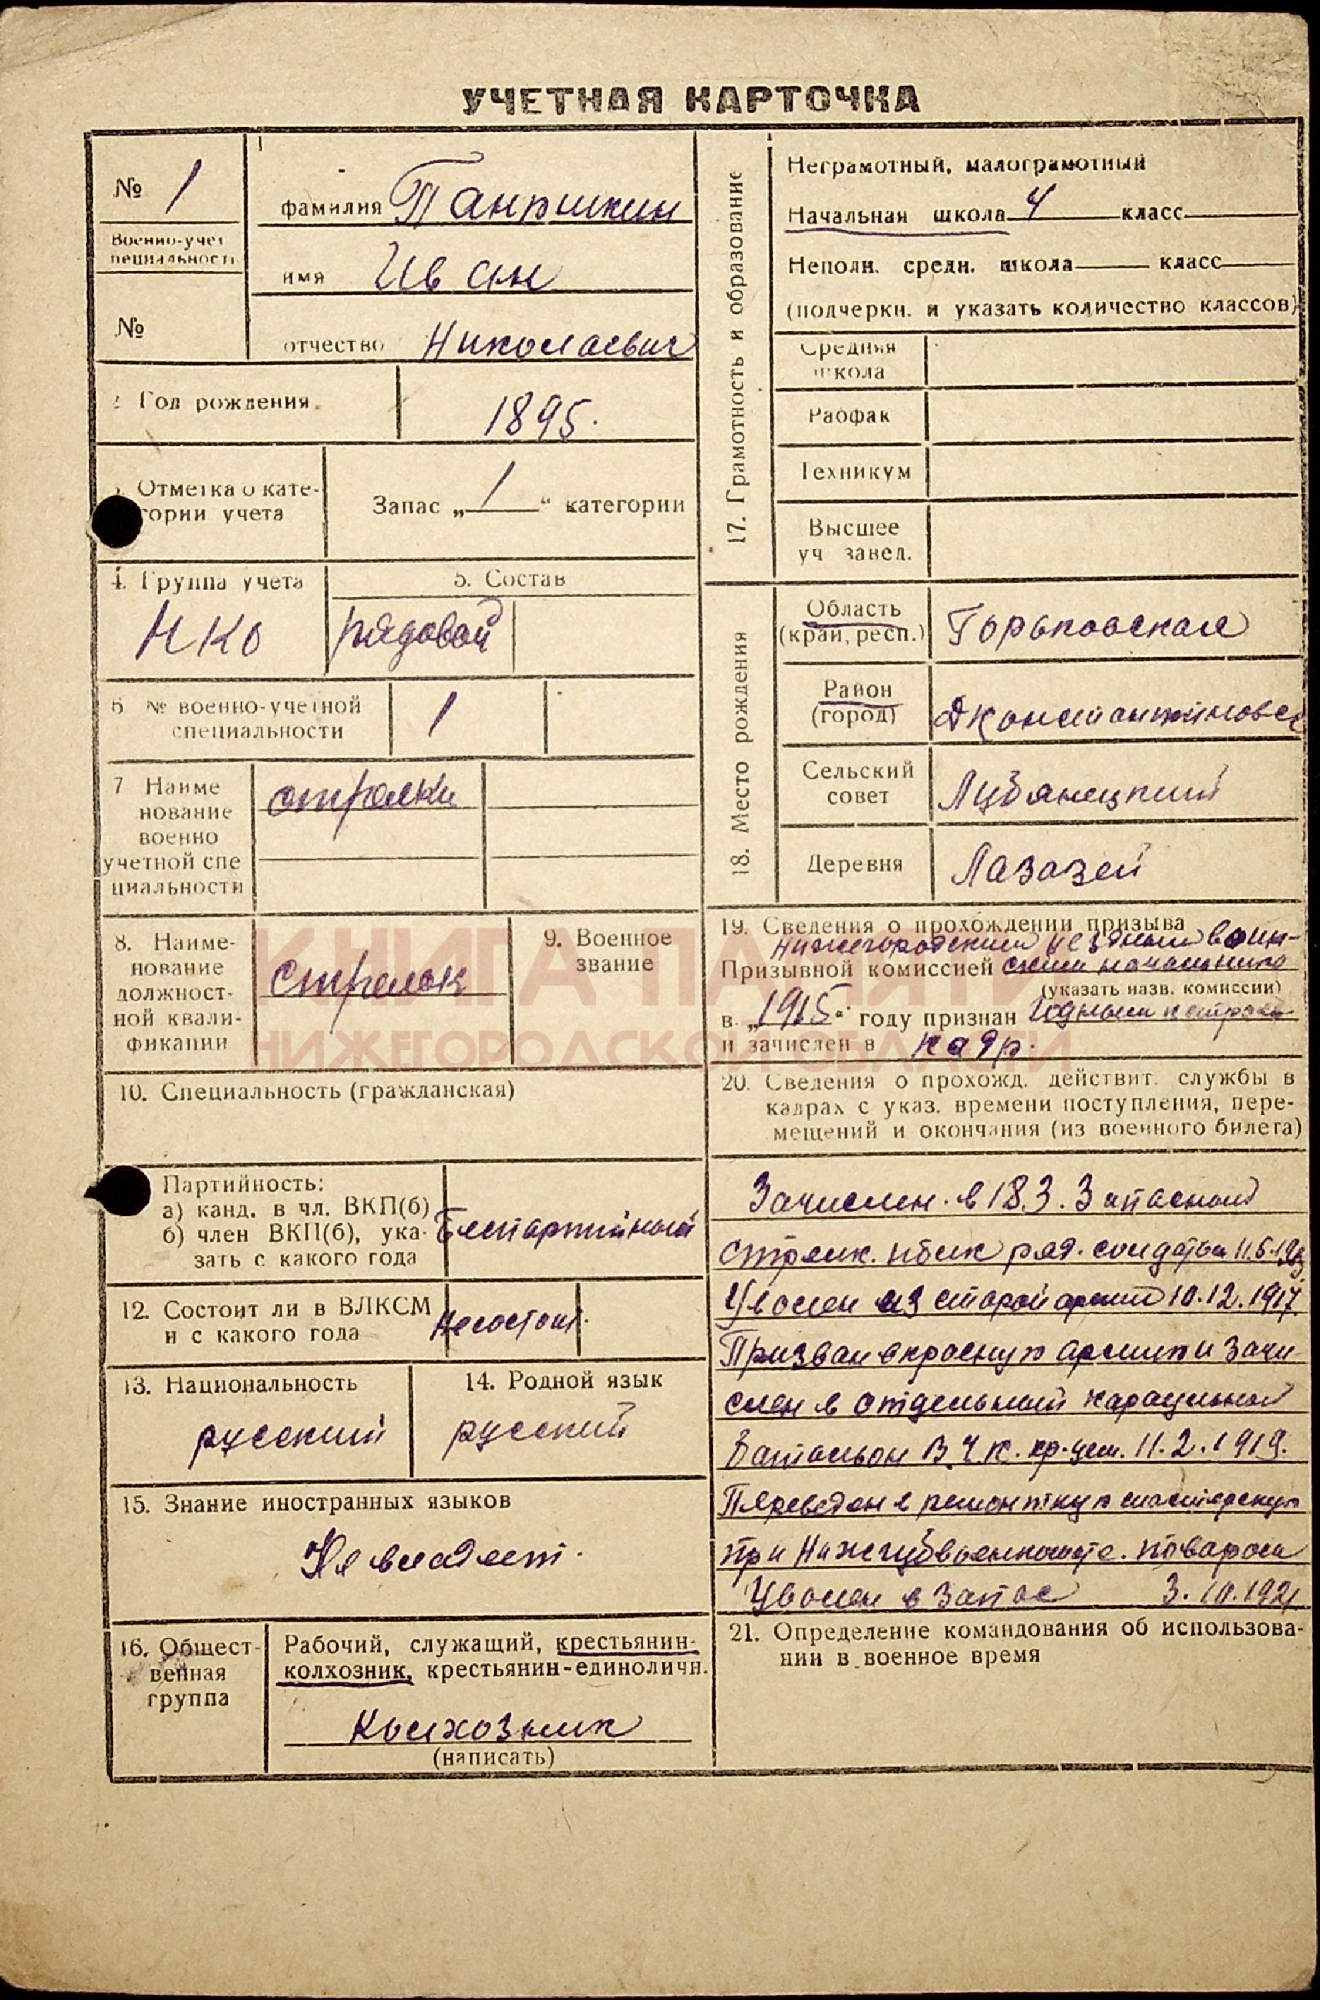 УЧЕТНАЯ КАРТОЧКА
№ 1
Военно-учет
пециальност
№
фамилия
имя Иван
отчество Николаевич
2 Год рождения 1895.
3. Отметка о кате-
гории учета
Запас „1“ категории
4. Группа учета
НКО
5. Состав
рядовой
6 № военно-учетной
специальности
1
7 Наиме
нование
военно
учетной спе
циальности
стрелки
8. Наиме-
нование
должност-
ной квали-
фикации
стрелок
9. Военное
звание
10. Специальность (гражданская)
Партийность:
а) канд. в чл. ВКП(б)
б) член ВКП(б), ука-
зать с какого года
Беспартийный
12. Состоит ли в ВЛКСМ
и с какого года
Несостоит.
13. Национальность
русский
14. Родной язык
русский
15. Знание иностранных языков
Не владеет.
16. Общест-
венная
группа
Рабочий, служащий, крестьянин-
колхозник, крестьянин-единоличн.
Колхозник
(написать)
17. Грамотность и образование
Неграмотный, малограмотный
Начальная школа 4 класс
Неполн. средн. школа класс
(подчеркн. и указать количество классов)
Средняя
школа
Рабфак
Техникум
Высшее
уч завед.
18. Место рождения
Область
(край, респ.)
Горьковская
Район
(город)
Дконстантиновск
Сельский
совет
Лубянецкий
Деревня
Лазазей
19. Сведения о прохождении призыва
Нижегородским уездным воин-
Призывной комиссией ским начальнико
(указать назв. комиссии)
в „1915“ году признан Годным к строев
и зачислен в кадр.
20. Сведения о прохожд. действит. службы в
кадрах с указ. времени поступления, пере-
мещений и окончания (из военного билета)
Зачислен в 183. Запасной
стрелк. полк ряд. солдатом
Уволен из старой армии 10.12.1917.
Призван вкрасную армию и зачи-
слен в отдельный караульный
батальон В.Ч.К. 11.2.1919.
Переведен в ремонтную мастерскую
при поваром
Уволен в Запас 3.10.1921
21. Определение командования об использова-
нии в военное время
КНИГА ПАМЯТИ
НИЖЕГОРОДСКОЙ ОБЛАСТИ